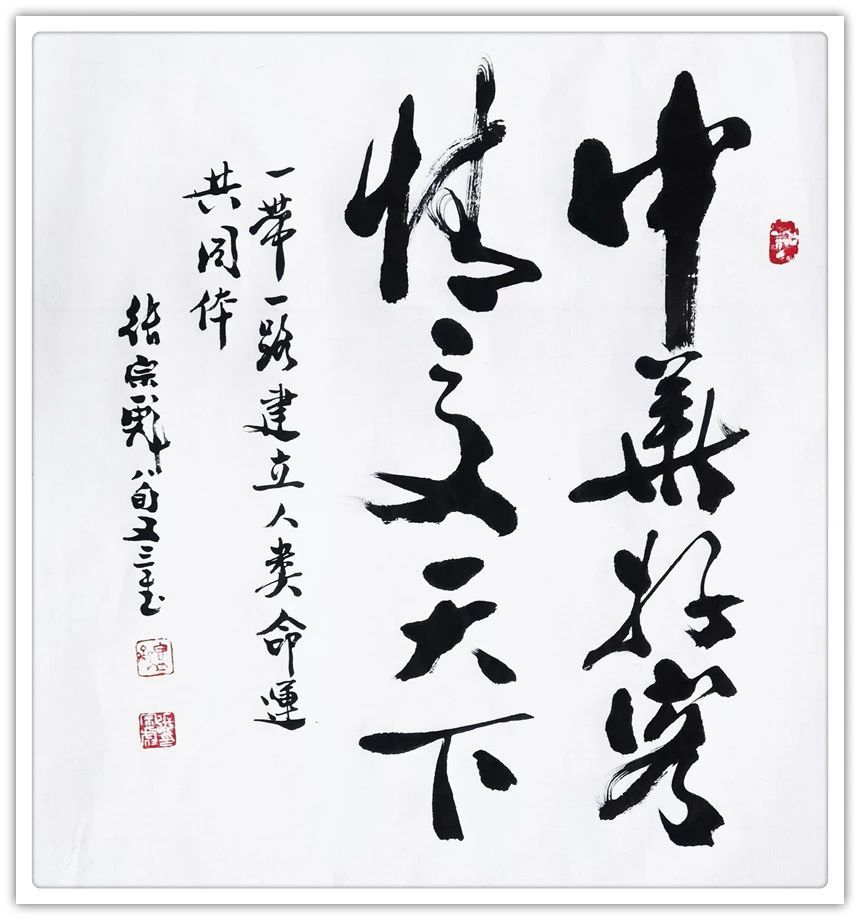 中華好客
情交天下
一带一路建立人类命運
共同体
張宗彪八旬又三书